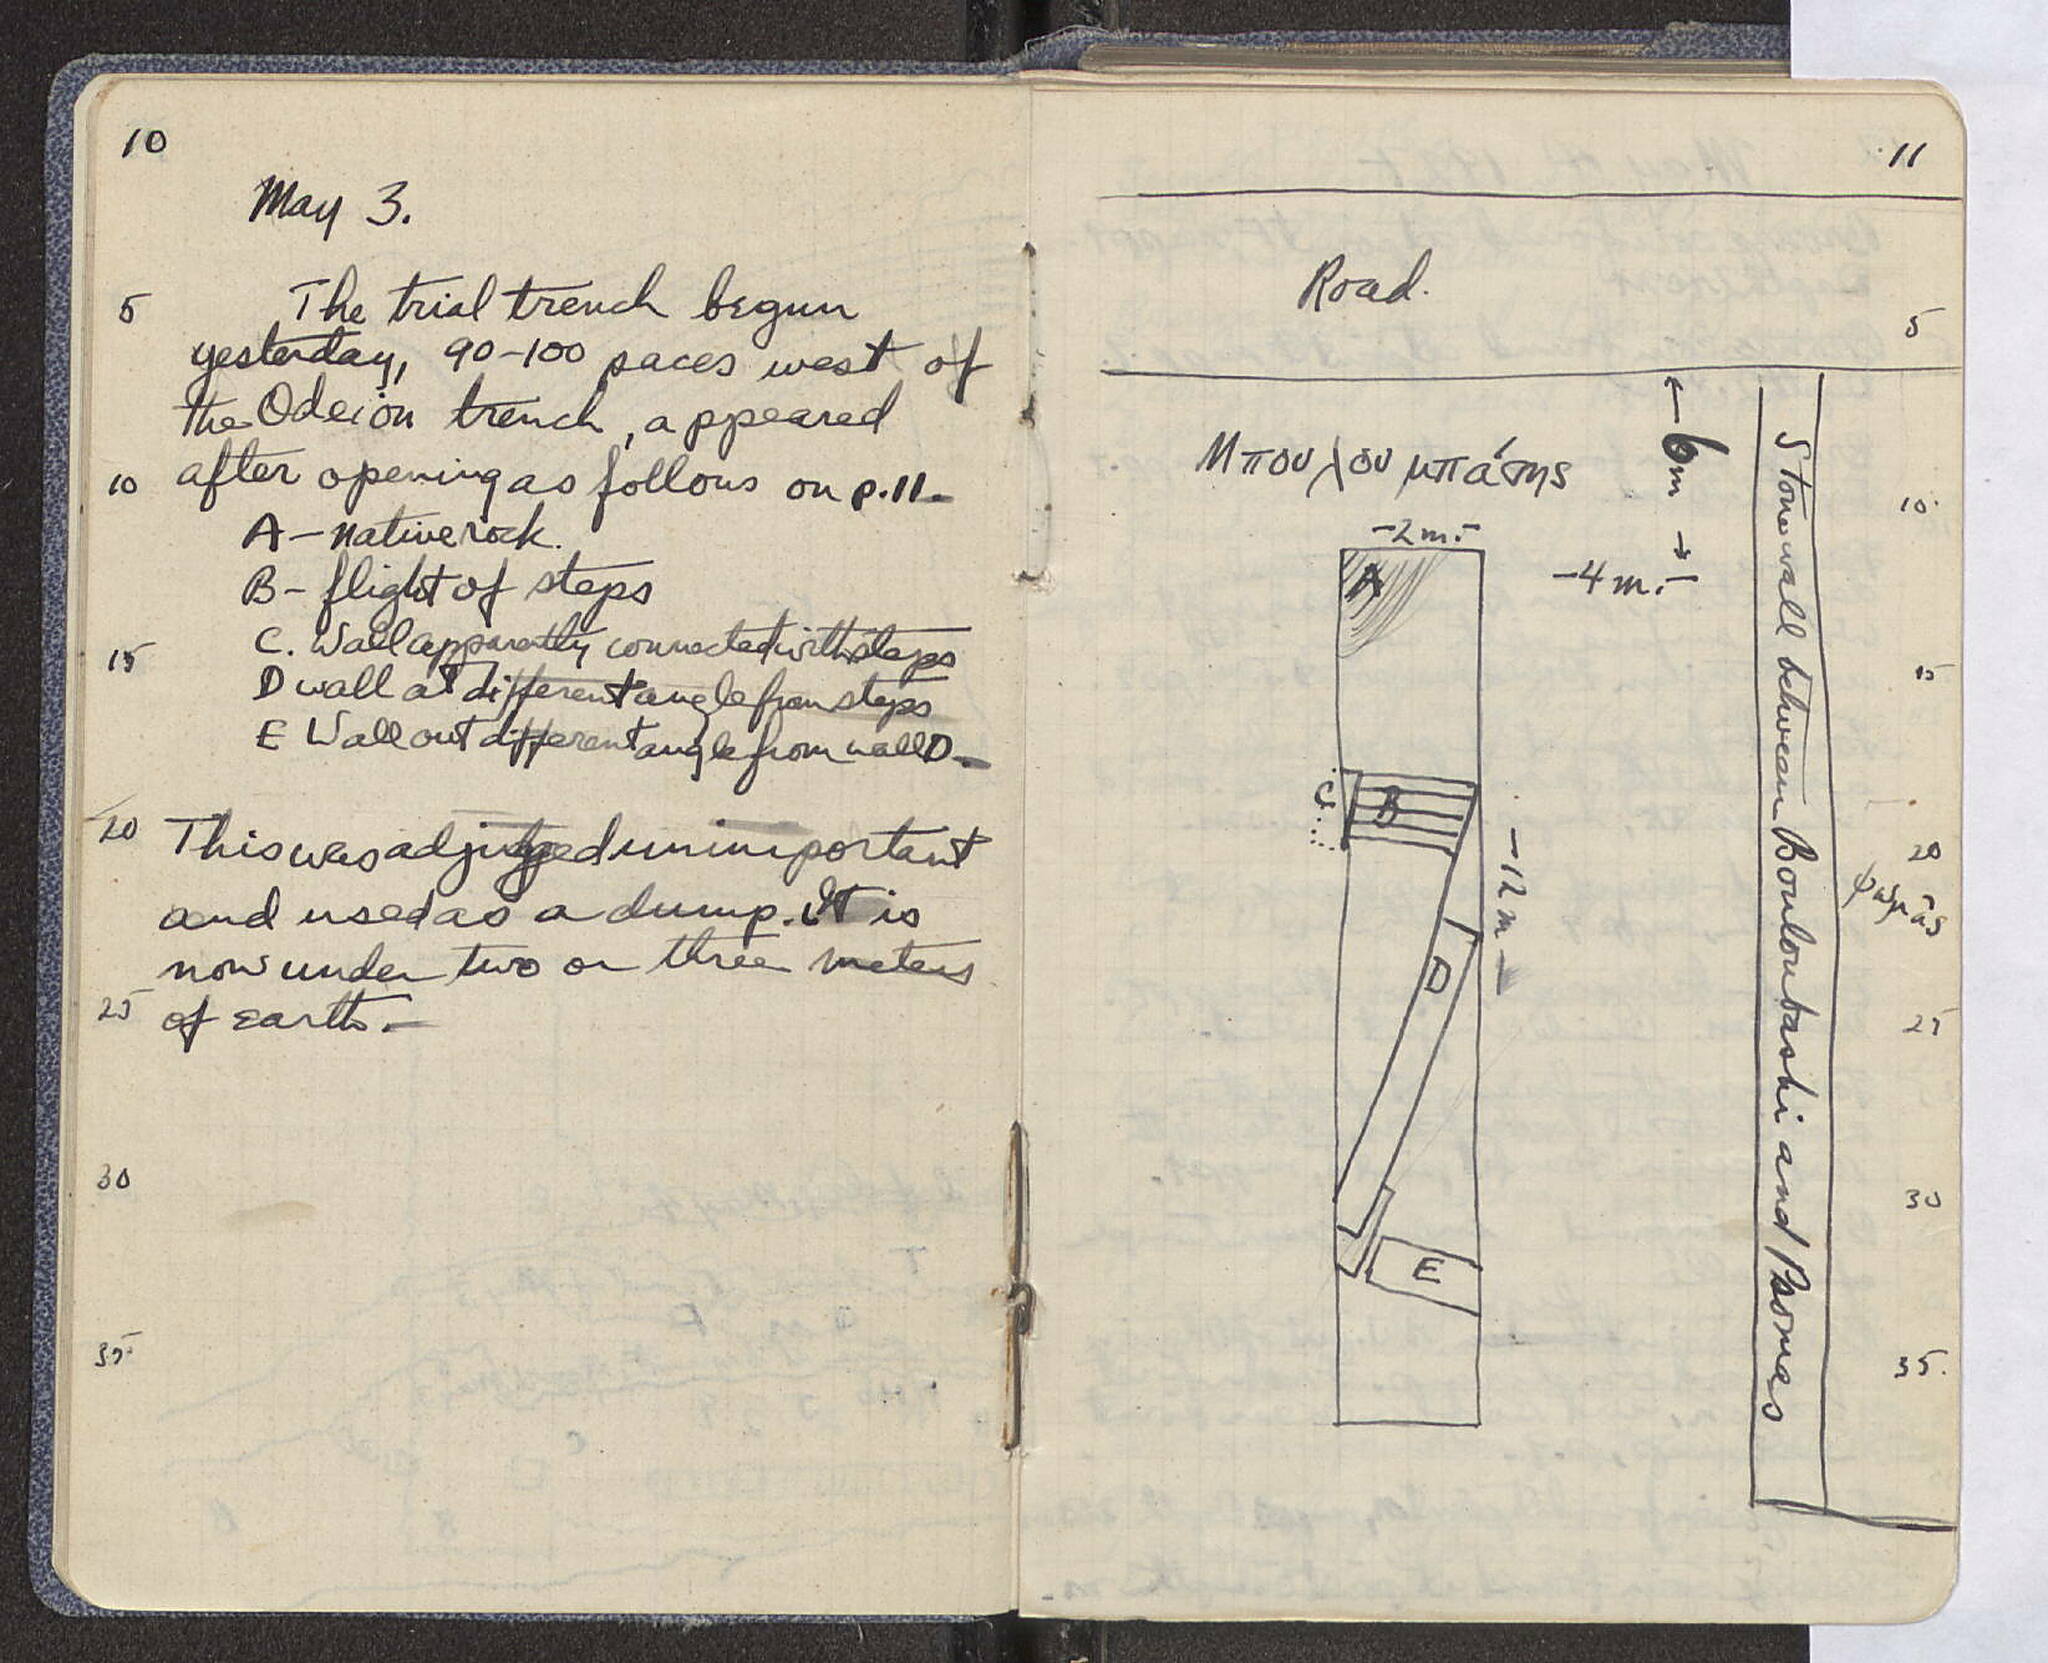 10
May 3.
5 The trial trench begun
yesterday, 90-100 paces west of
the Odeion trench, appeared
10 after opening as follows on p.11.
A - native rock.
B - flight of steps
15 C. Wall apparently connected with steps
D wall at different angle from steps
E Wall out different angle from wall D.
20 This was adjudged unimportant
and used as a dump. It is
now under two or three meters
25 of earth.
30
35
11
Road.
5
Μπουλουμπάσης
← 6m →
10
-2m.-
-4m.-
A
15
C
B
-12m-
20
D
25
30
E
35.
Stone wall between Bouloubashi and Psomas